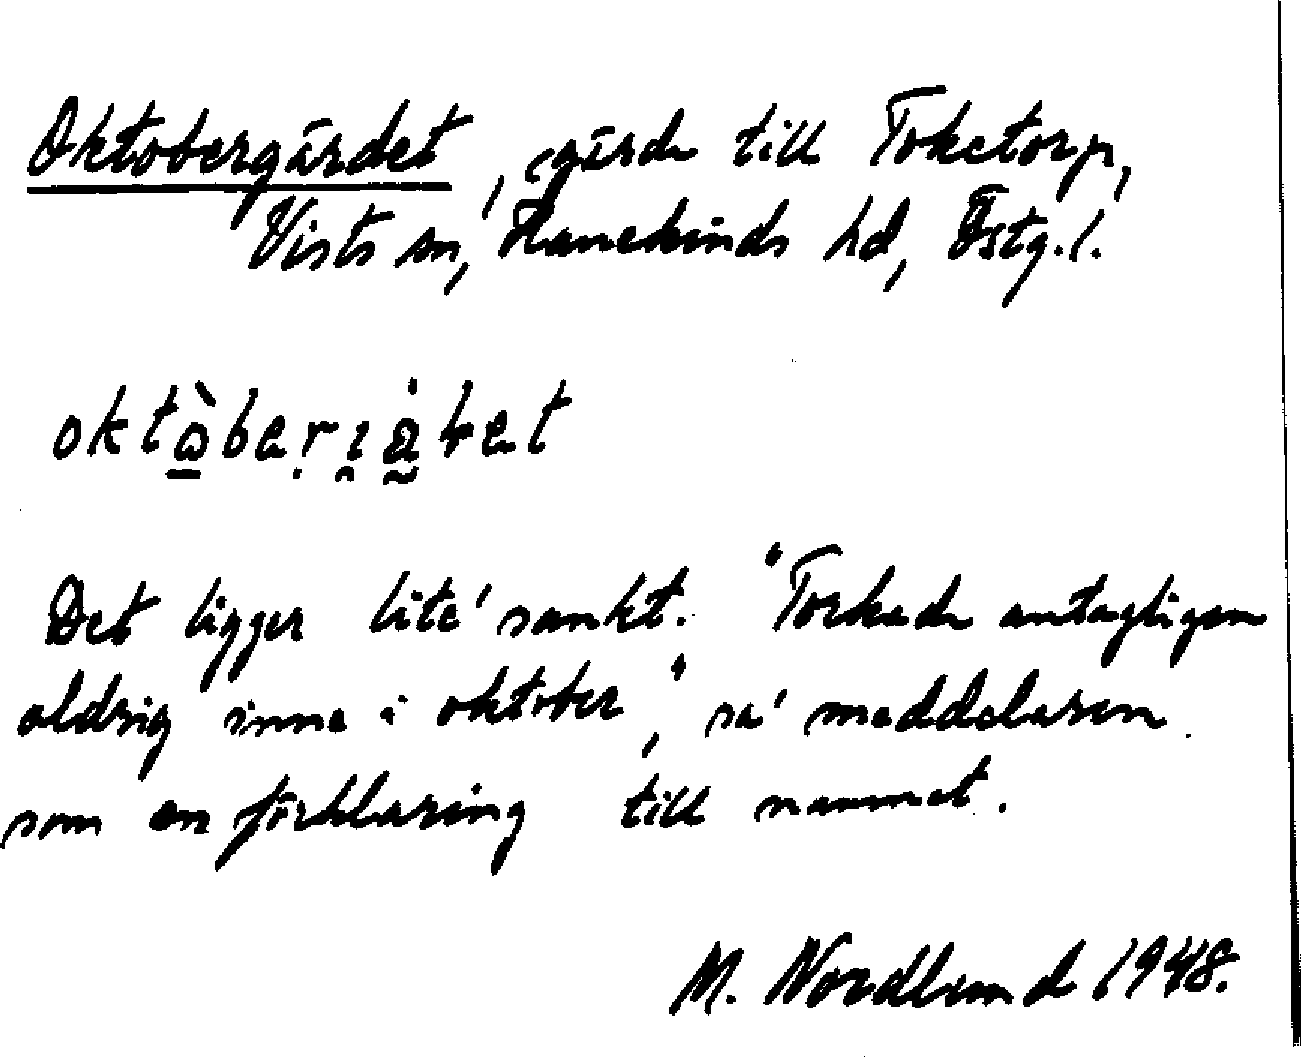 Oktobergärdet, gärde till Toketorp,
Vists sn, Hanekinds hd, Östg.l.
Det ligger lite' sankt. "Torkade antagligen
aldrig inne i oktober", sa' meddelaren
som en förklaring till namnet.
M. Nordlund 1948.